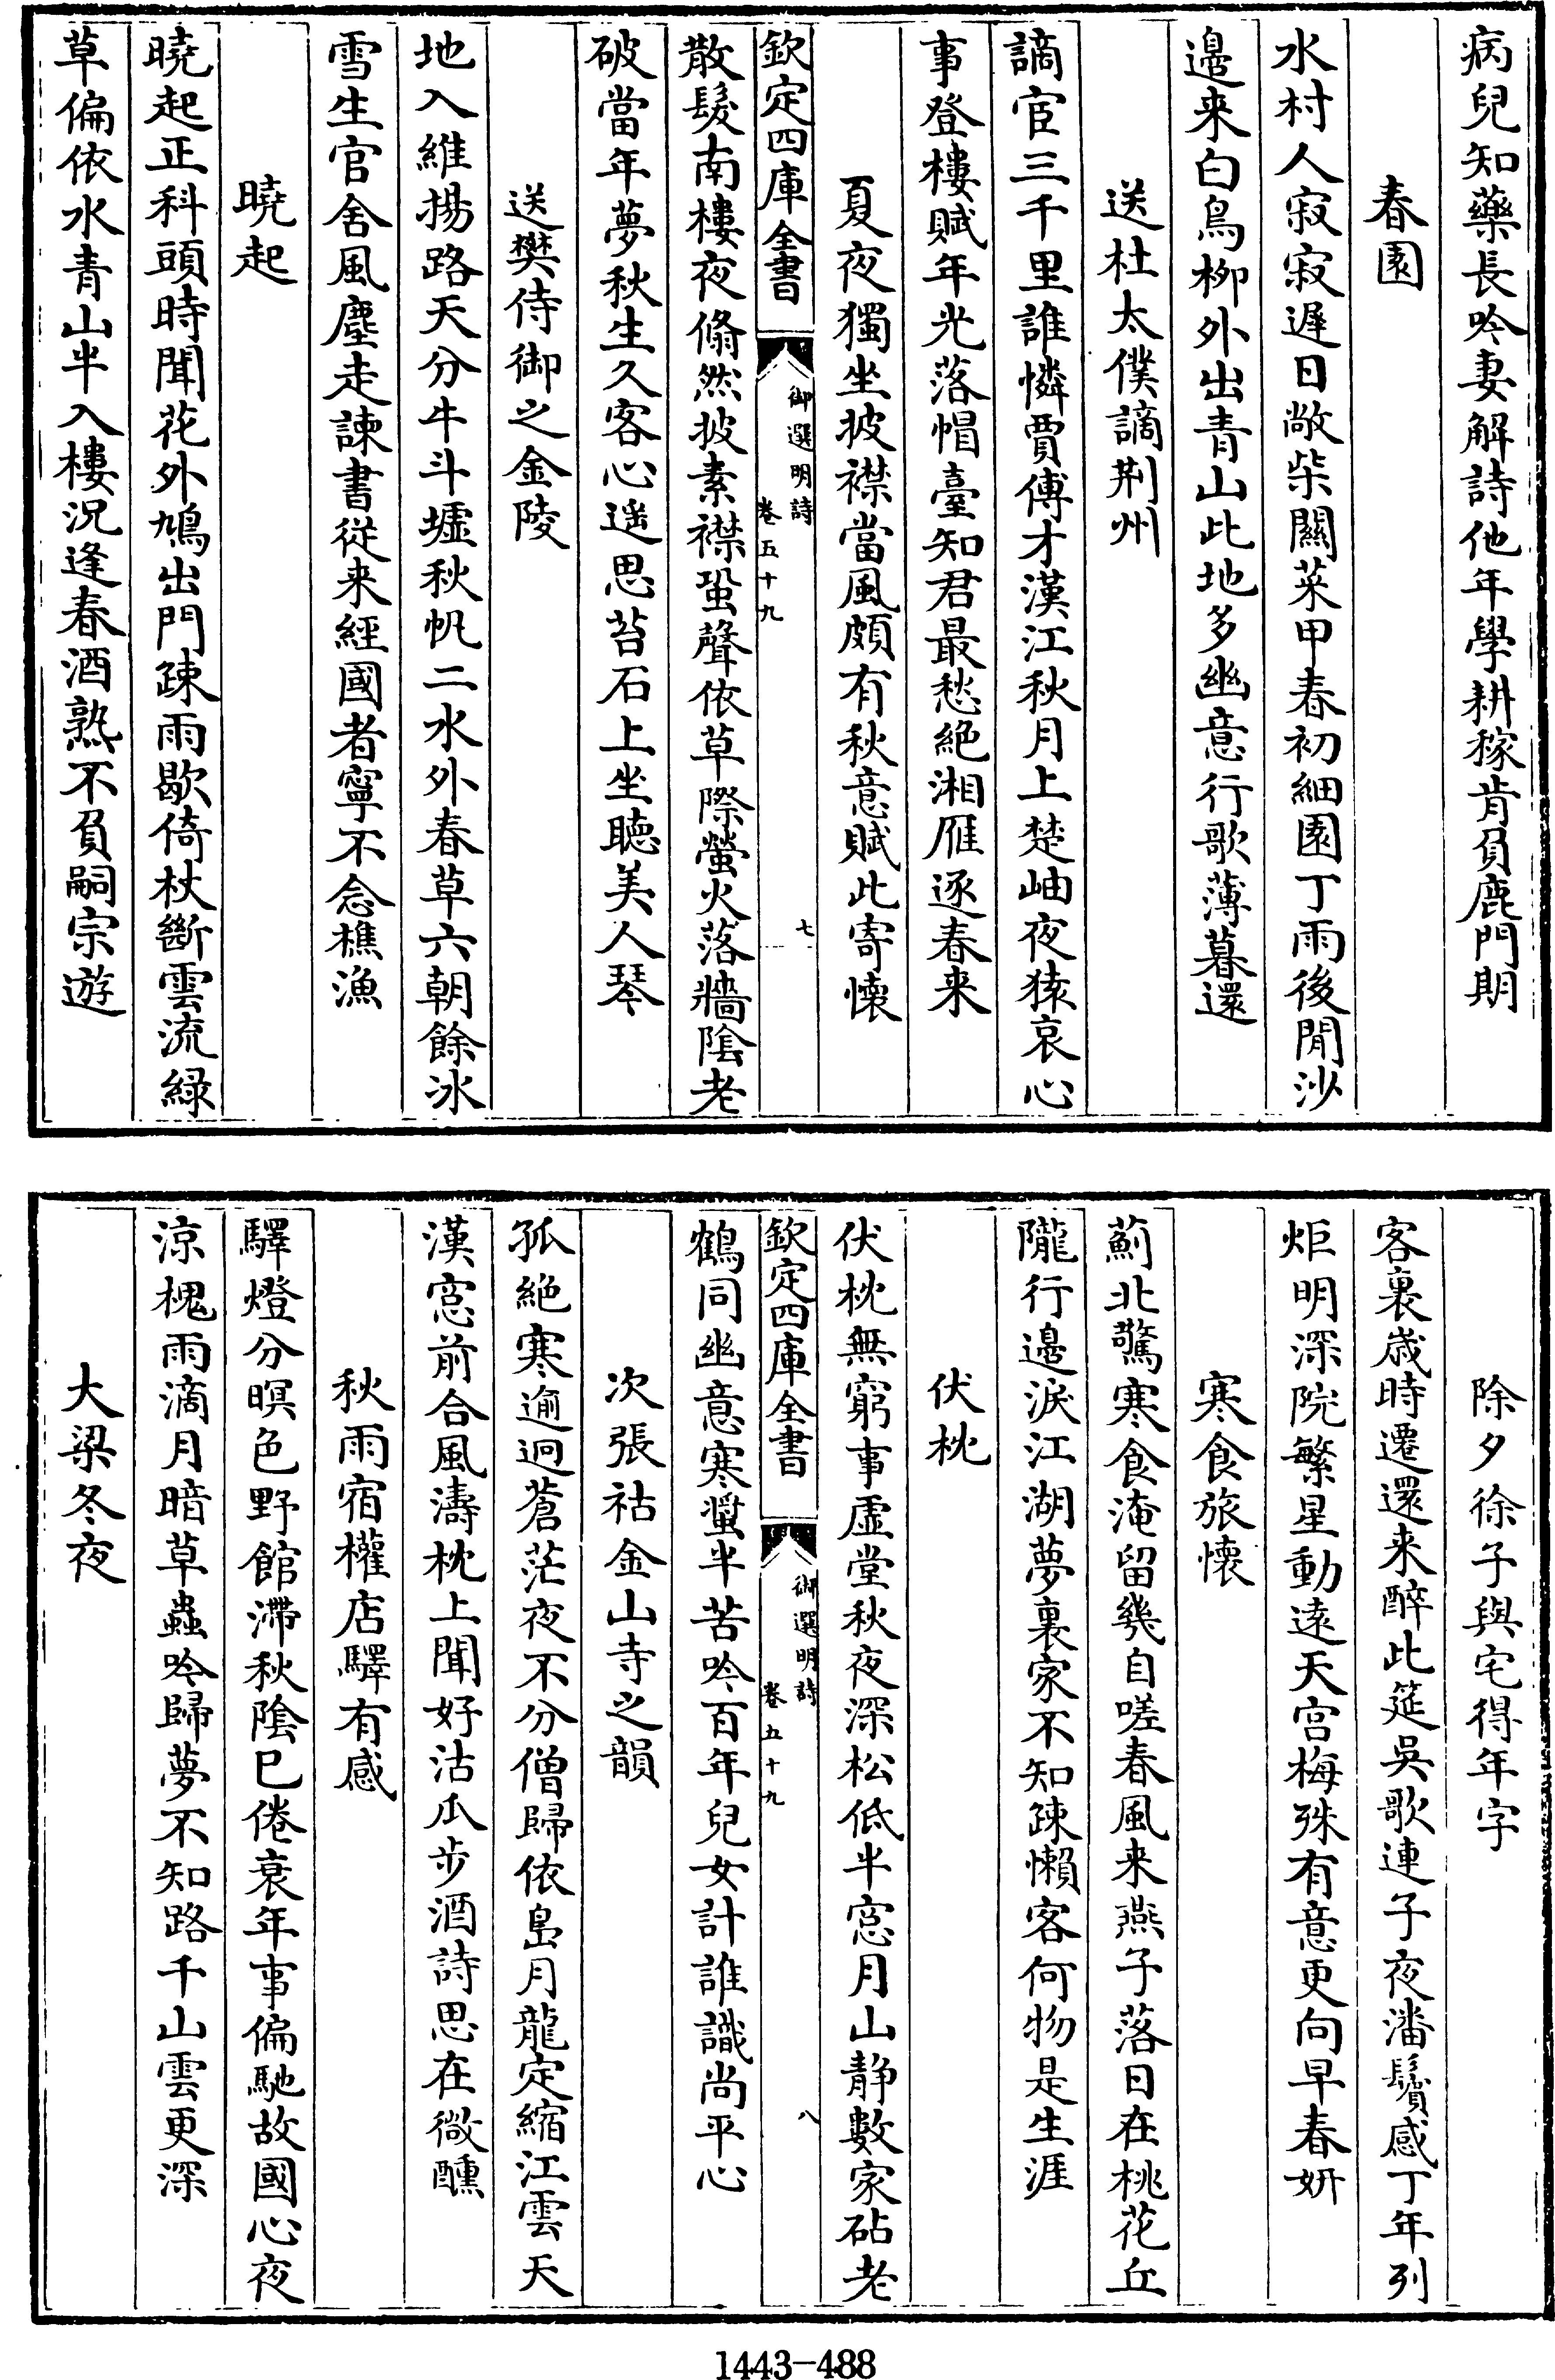 病兒知藥長吟妻解詩他年學耕稼肯負鹿門期
春園
水村人寂寂遲日敞柴關菜甲春初細園丁雨後閒沙
邉来白鳥柳外出青山此地多幽意行歌薄暮還
送杜太僕謫荆州
謫宦三千里誰憐賈傅才漢江秋月上楚岫夜猿哀心
事登樓賦年光落帽臺知君最愁絶湘雁逐春来
夏夜獨坐披襟當風頗有秋意賦此寄懷
欽定四庫全書
御選明詩
卷五十九
七
散髮南樓夜翛然披素襟蛩聲依草際螢火落牆隂老
破當年夢秋生久客心遥思苔石上坐聽美人琴
送樊侍御之金陵
地入維揚路天分牛斗墟秋帆二水外春草六朝餘冰
雪生官舍風塵走諫書從来經國者寧不念樵漁
曉起
曉起正科頭時聞花外鳩出門疎雨歇倚杖斷雲流緑
草偏依水青山半入樓况逢春酒熟不負嗣宗遊
除夕徐子與宅得年字
客裏歳時遷還来醉此筵吳歌連子夜潘鬢感丁年列
炬明深院繁星動遠天宫梅殊有意更向早春妍
寒食旅懷
薊北驚寒食淹留幾自嗟春風来燕子落日在桃花丘
隴行邉淚江湖夢裏家不知疎懶客何物是生涯
伏枕
伏枕無窮事虚堂秋夜深松低半窓月山静數家砧老
欽定四庫全書
御選明詩
卷五十九
八
鶴同幽意寒螀半苦吟百年兒女計誰識尚平心
次張祜金山寺之韻
孤絶寒逾迥蒼茫夜不分僧歸依島月龍定縮江雲天
漢窓前合風濤枕上聞好沽瓜步酒詩思在微醺
秋雨宿權店驛有感
驛燈分暝色野館滯秋隂已倦衰年事偏馳故國心夜
涼槐雨滴月暗草蟲吟歸夢不知路千山雲更深
大梁冬夜
1443-488